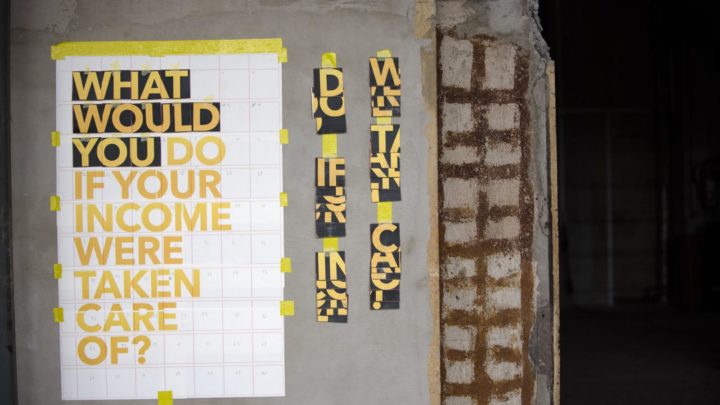 WHAT
WOULD
YOU DO
IF YOUR
INCOME
WERE
TAKEN
CARE
OF?
D
IF
IN
W
TA
C